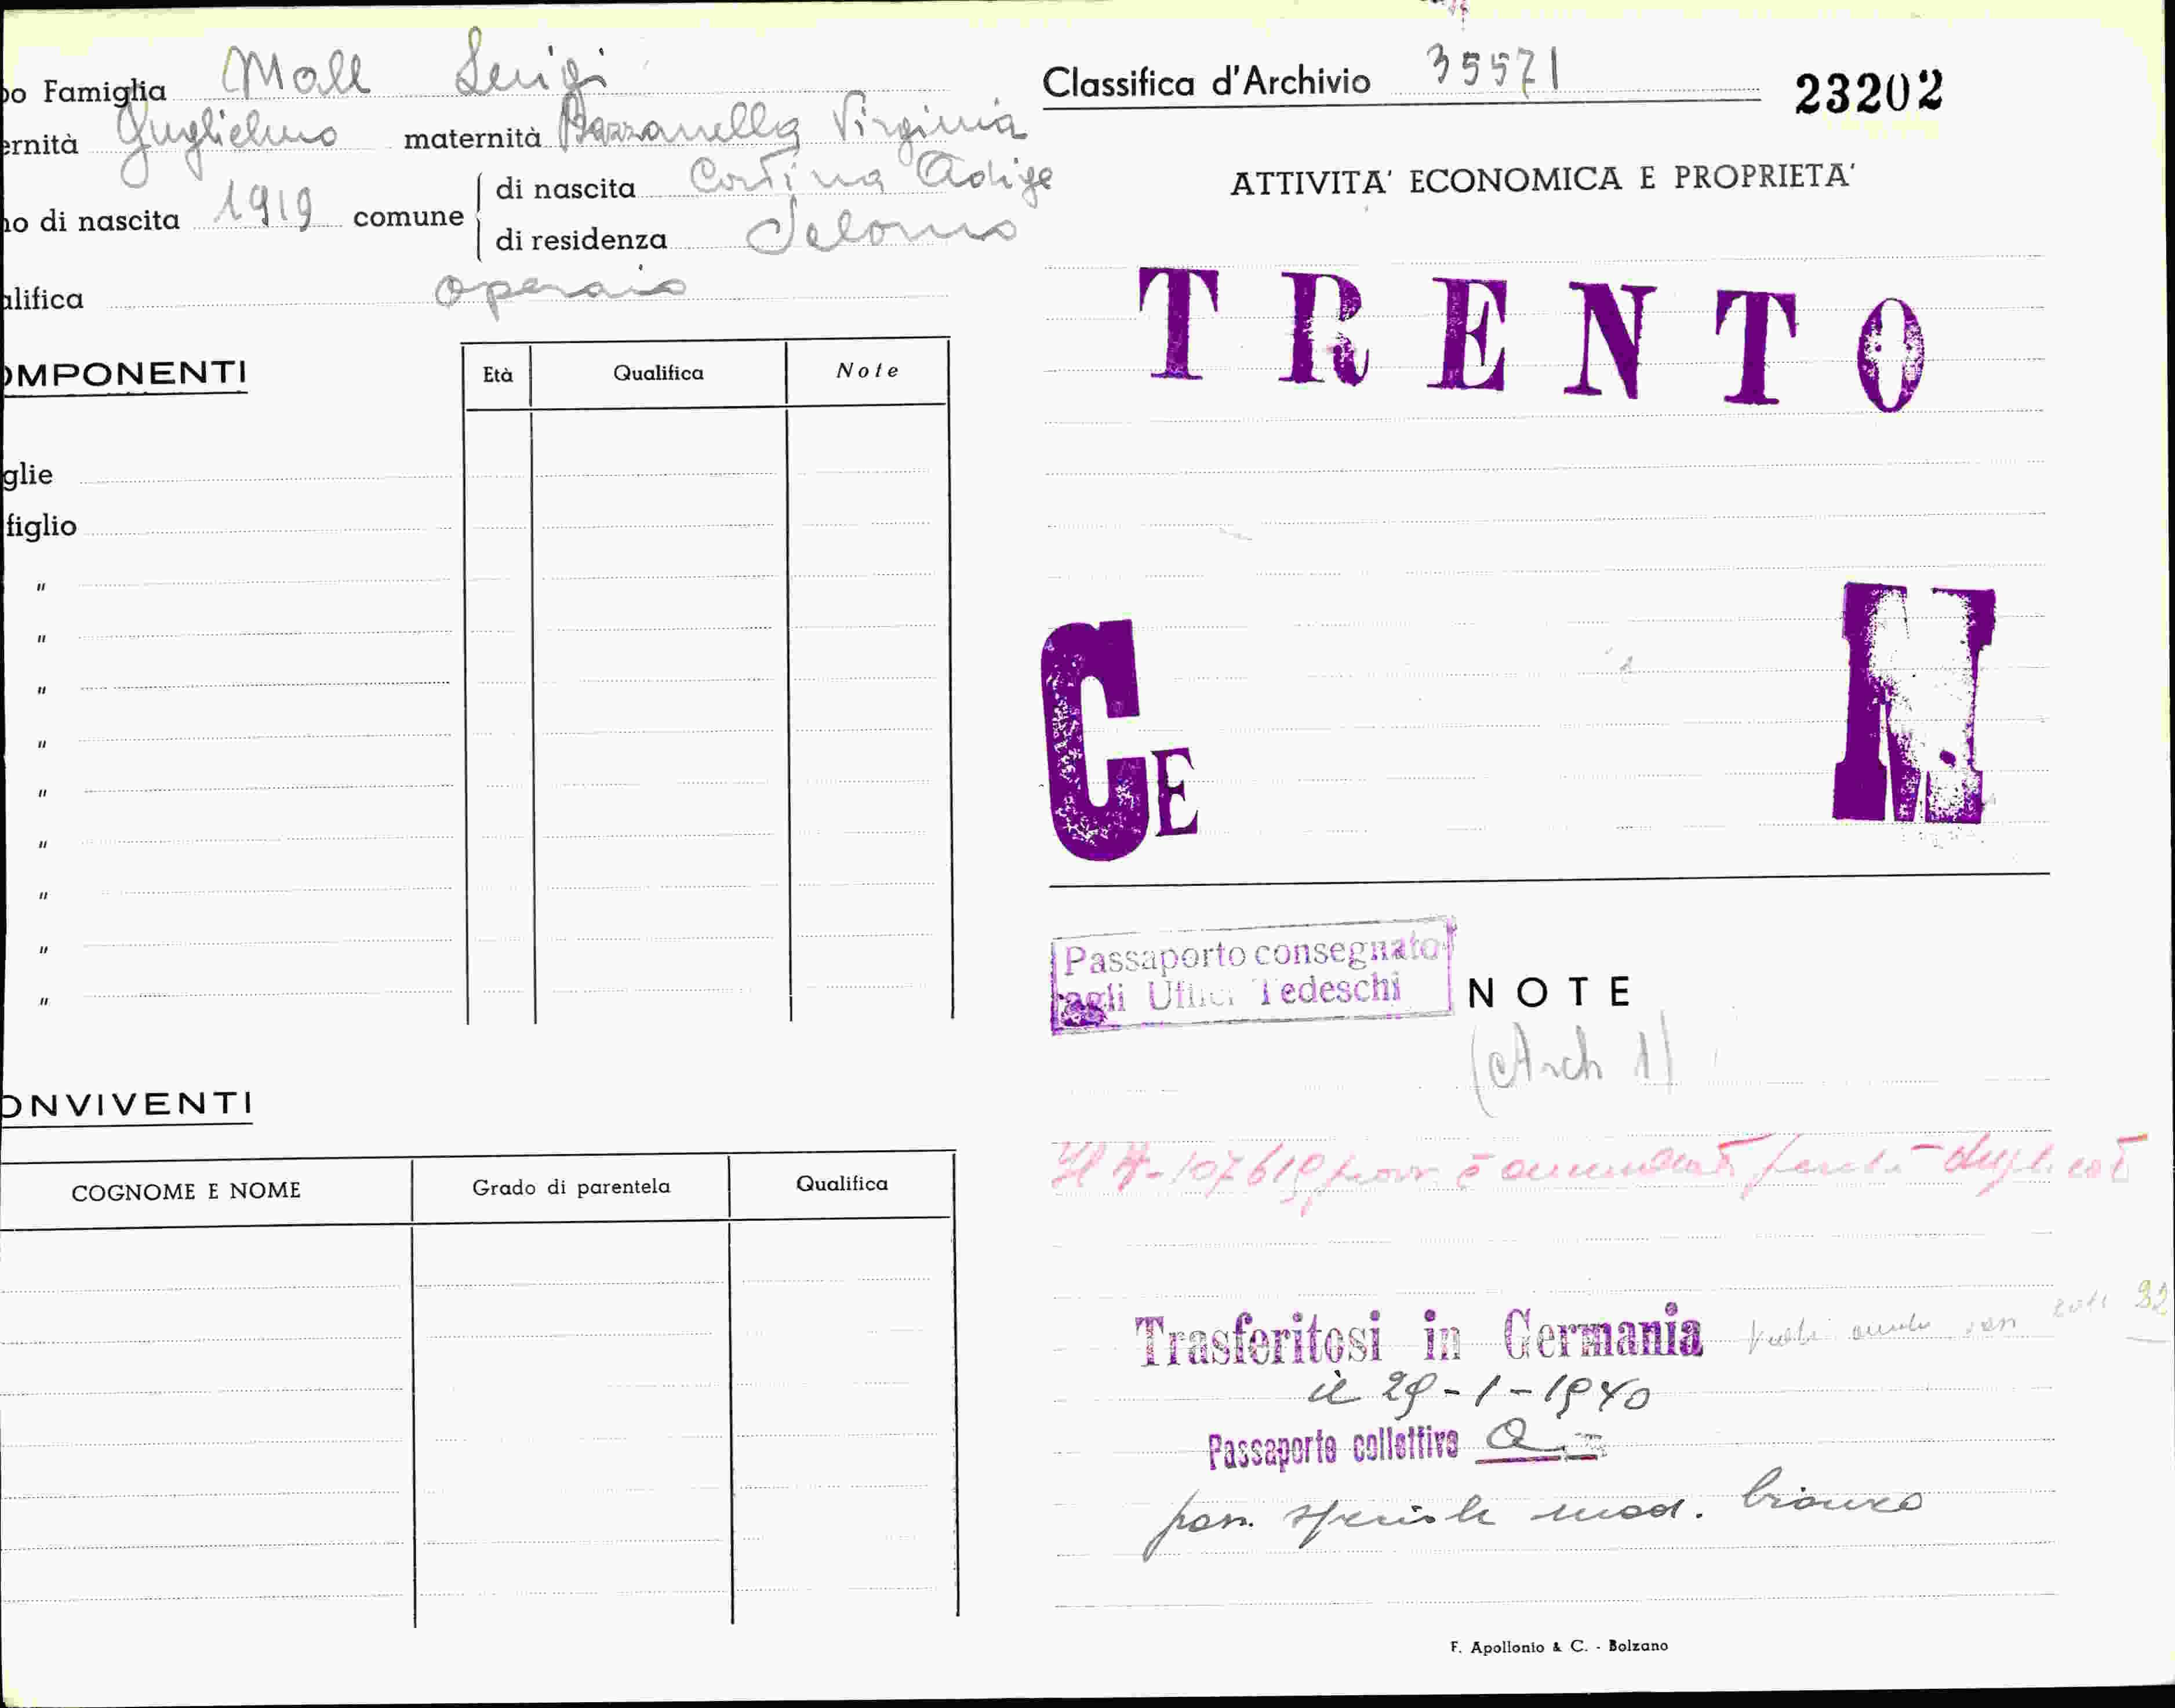 po Famiglia Moll Luigi
ernità Guglielmo maternità Bazzanella Virginia
no di nascita 1919 comune di nascita Cortina Adige
di residenza Salorno
alifica operaio
OMPONENTI
Età Qualifica Note
glie
figlio
"
"
"
"
"
"
"
"
"
ONVIVENTI
COGNOME E NOME Grado di parentela Qualifica
Classifica d'Archivio 35571 23202
ATTIVITA' ECONOMICA E PROPRIETA'
TRENTO
CE N
Passaporto consegnato
agli Uffici Tedeschi
NOTE
(Arch 1)
Il N-107619
Trasferitosi in Germania
il 29-1-1940
Passaporto collettivo
pass. speciale mod. bianco
F. Apollonio & C. - Bolzano